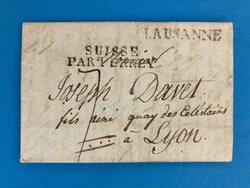 LAUSANNE
SUISSE
PAR FERNEY
Monsieur
Joseph Davet
fils ainé quay des Celestains
à Lyon.